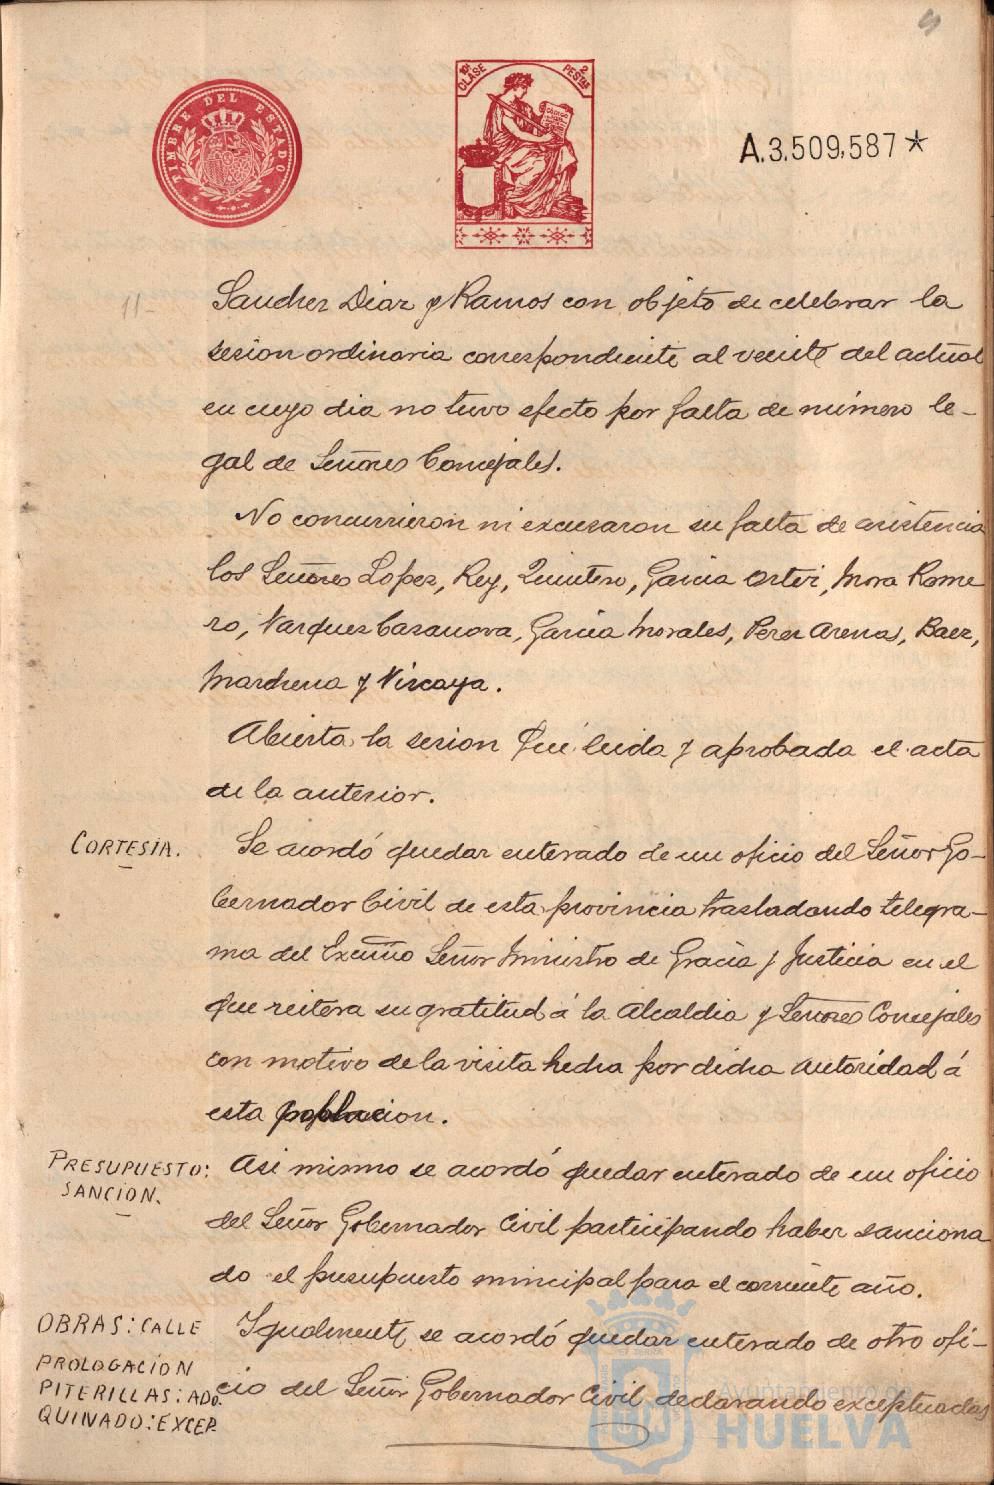 TIMBRE DEL ESTADO
10ª CLASE
2 PESETAS
A.3,509,587*
11-
Sanchez Diaz y Ramos con objeto de celebrar la
sesion ordinaria correspondiente al veinte del actual
en cuyo dia no tuvo efecto por falta de número le-
gal de Señores Concejales.
No concurrieron ni excusaron su falta de asistencia
los Señores Lopez, Rey, Quintero, Garcia Ortiz, Mora Rome
ro, Vazquez Casanova, Garcia Morales, Perez Arenas, Baez,
Marchena y Vizcaya.
Abierta la sesion fué leida y aprobada el acta
de la anterior.
CORTESIA.
Se acordó quedar enterado de un oficio del Señor Go-
bernador Civil de esta provincia trasladando telegra-
ma del Excmo Señor Ministro de Gracia y Justicia en el
que reitera su gratitud á la Alcaldia y Señores Concejales
con motivo de la visita hecha por dicha autoridad á
esta poblacion.
PRESUPUESTO:
SANCION.
Asi mismo se acordó quedar enterado de un oficio
del Señor Gobernador Civil participando haber sanciona
do el presupuesto minicipal para el corriente año.
OBRAS: CALLE
PROLOGACION
PITERILLAS: ADO.
QUINADO: EXCEP.
Igualmente se acordó quedar enterado de otro ofi-
cio del Señor Gobernador Civil declarando exceptuadas
Ayuntamiento de
HUELVA